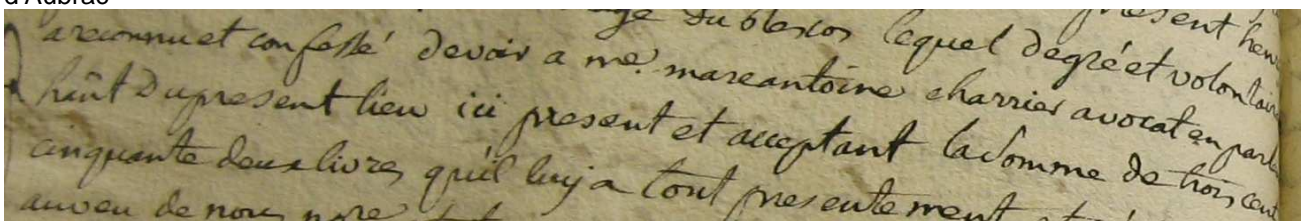 d'Aubrac
lequel degré et volontaire
a reconnu et confessé devoir a me. marcantoine charrier avocat en parle
habitant du present lieu ici present et acceptant la somme de trois cent
cinquante deux livres qu'il luy a tout presentement
au veu de nous nore